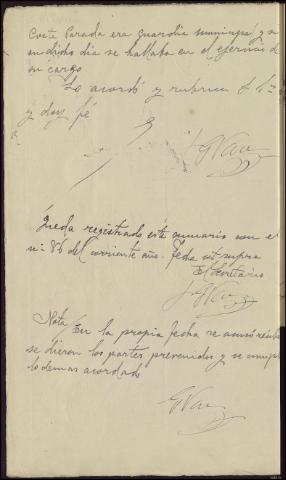 Coste Parada era guardia municipal y si
en dicho dia se hallaba en el ejercicio de
su cargo
Lo acordó y rubrica S. Sª
y doy fé
Queda registrado este sumario con el
nº 86 del corriente año. Fecha ut supra
El Secretario
Nota En la propia fecha se acusó recibo
se dieron los partes prevenidos y se cumplió
lo demas acordado